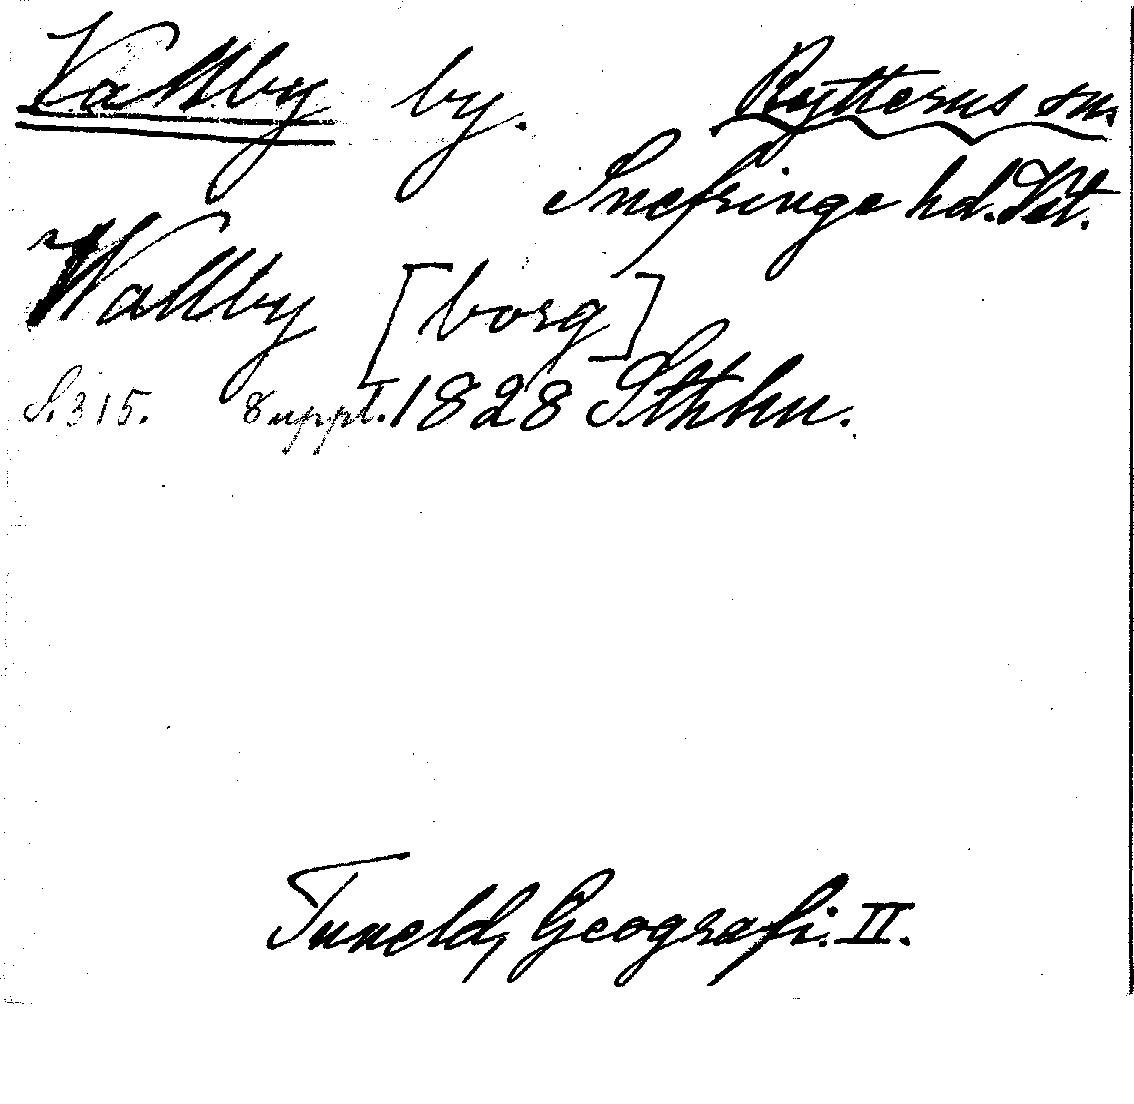 Vallby by. Rytterns sn.
Snefringe hd. Vst.
Wallby [borg]
S. 315. Suppl. 1828 Sthlm.
Tuneld, Geografi. II.